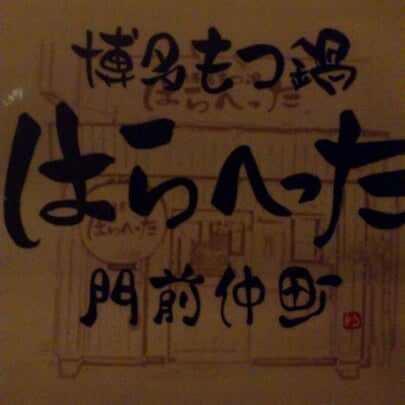 博多もつ鍋
はらへった
はらへった
はらへった
門前仲町